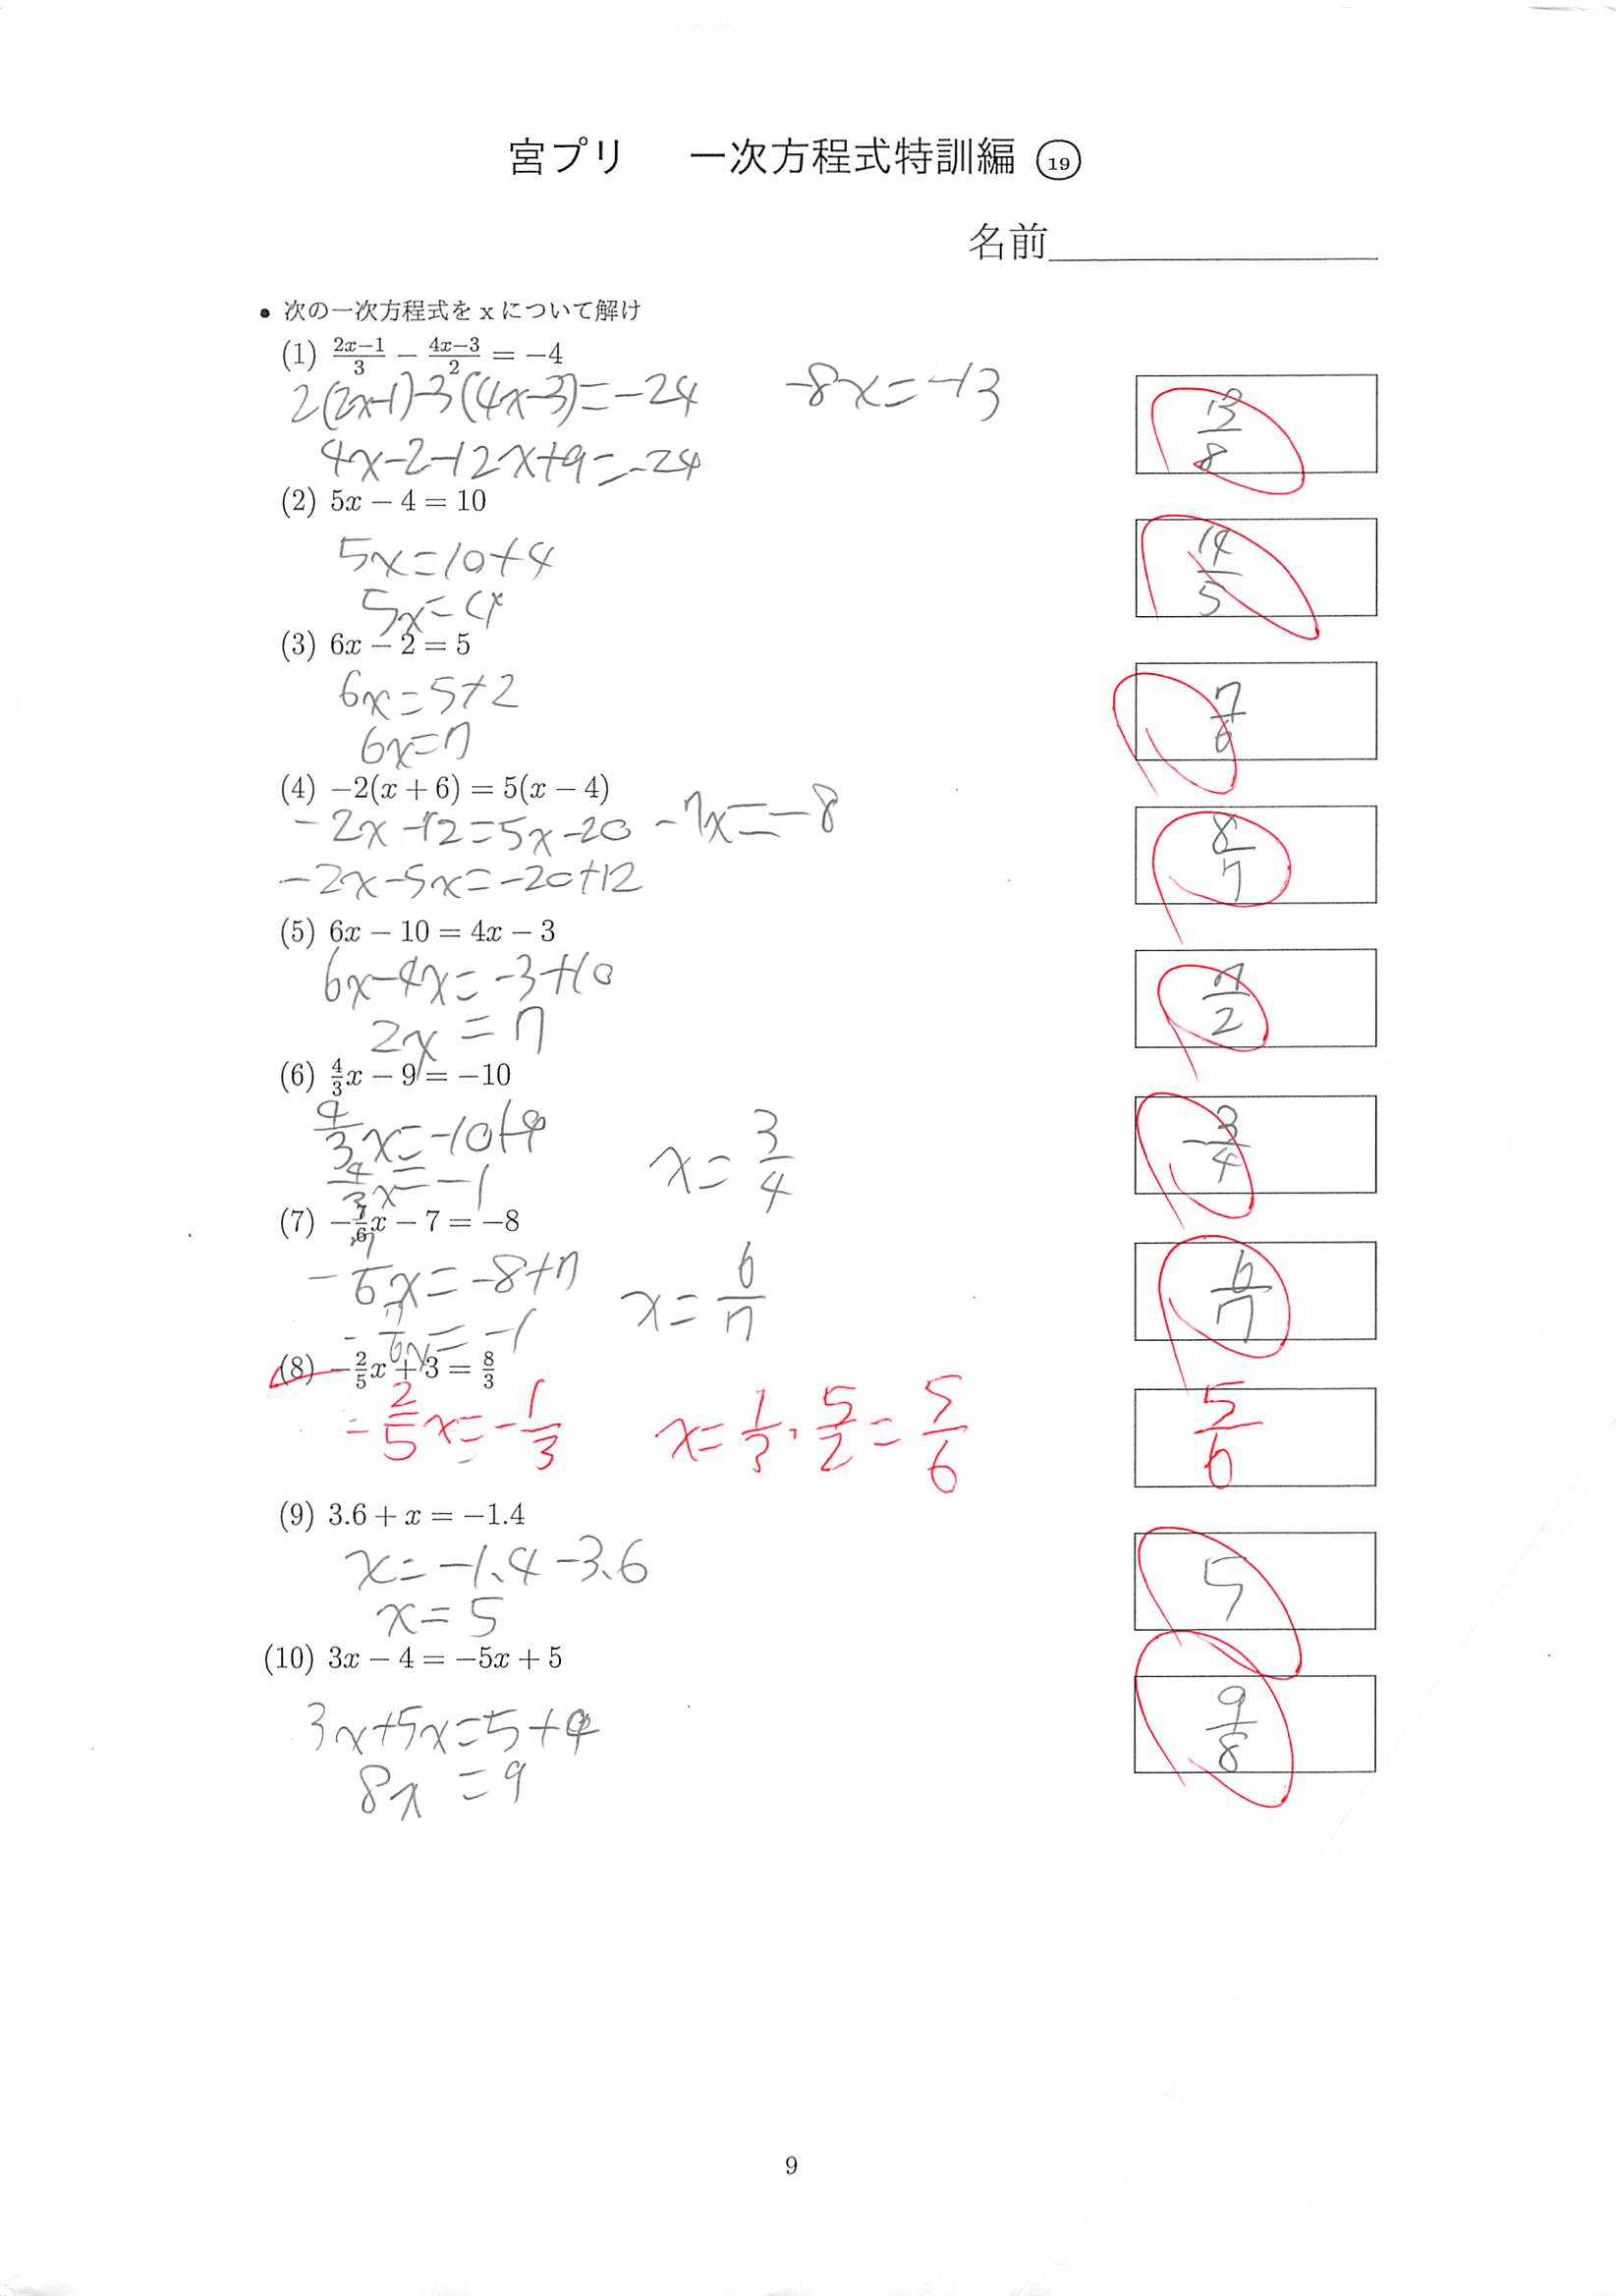 宮プリ 一次方程式特訓編 ⑲
名前
• 次の一次方程式を x について解け
(1) \frac{2x-1}{3} - \frac{4x-3}{2} = -4
2(2x-1)-3(4x-3)=-24 -8x=-13
4x-2-12x+9=-24
\frac{13}{8}
(2) 5x - 4 = 10
5x=10+4
5x=14
\frac{14}{5}
(3) 6x - 2 = 5
6x=5+2
6x=7
\frac{7}{6}
(4) -2(x + 6) = 5(x - 4)
-2x-12=5x-20 -7x=-8
-2x-5x=-20+12
\frac{8}{7}
(5) 6x - 10 = 4x - 3
6x-4x=-3+10
2x=7
\frac{7}{2}
(6) \frac{4}{3}x - 9 = -10
\frac{4}{3}x=-10+9
\frac{4}{3}x=-1 x=\frac{3}{4}
-\frac{3}{4}
(7) -\frac{7}{6}x - 7 = -8
-\frac{7}{6}x=-8+7
-\frac{7}{6}x=-1 x=\frac{6}{7}
\frac{6}{7}
(8) -\frac{2}{5}x + 3 = \frac{8}{3}
-\frac{2}{5}x=-\frac{1}{3} x=\frac{1}{3}·\frac{5}{2}=\frac{5}{6}
\frac{5}{6}
(9) 3.6 + x = -1.4
x=-1.4-3.6
x=5
5
(10) 3x - 4 = -5x + 5
3x+5x=5+4
8x=9
\frac{9}{8}
9